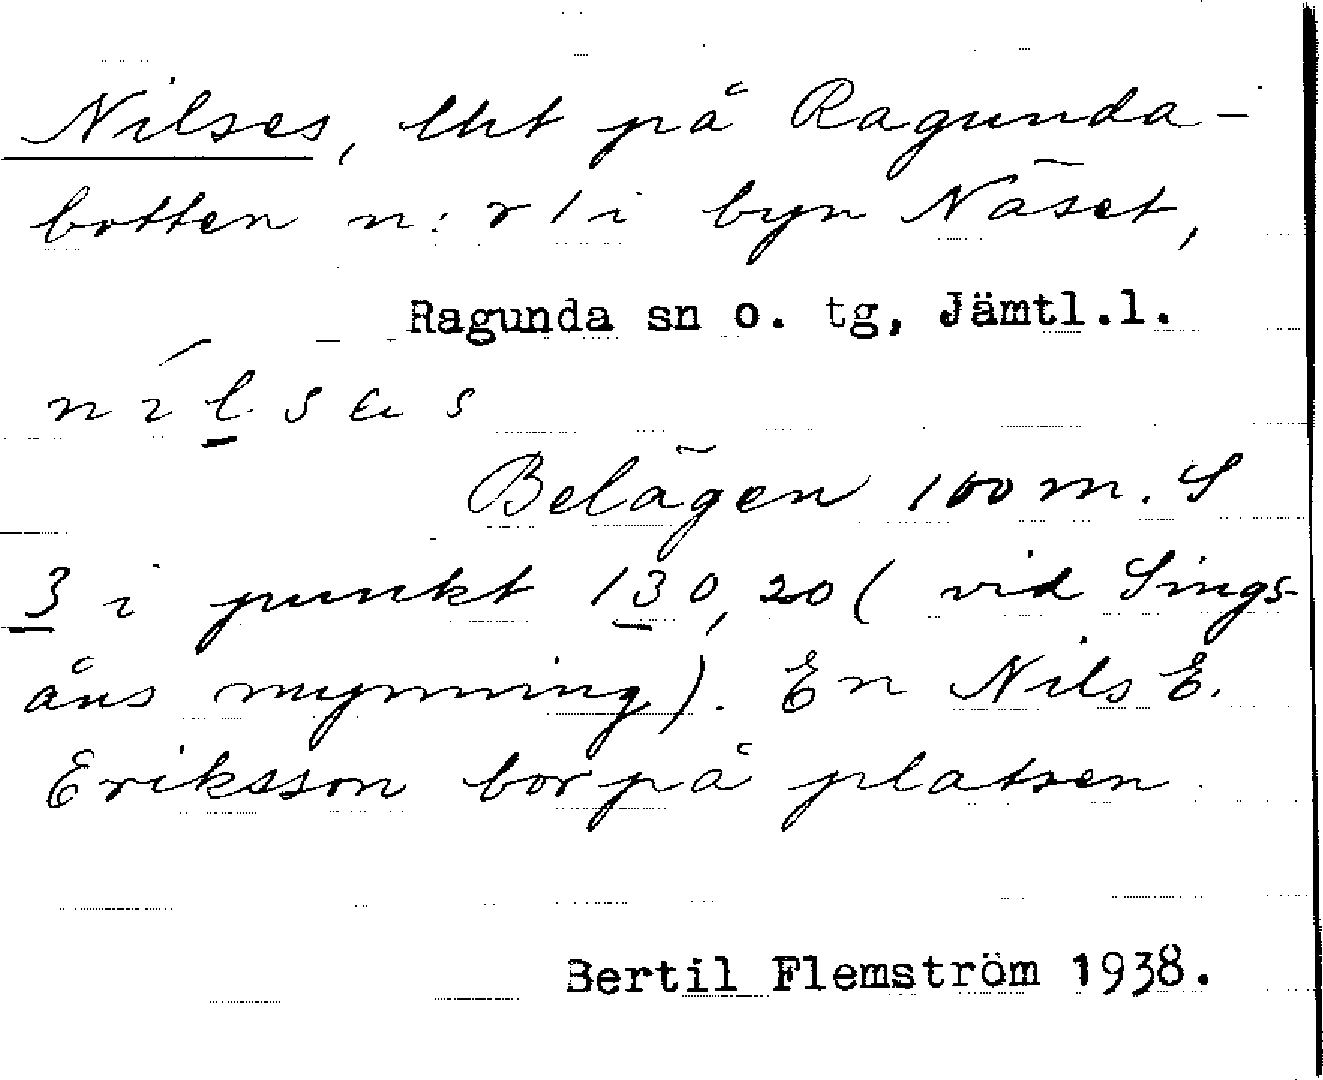 Nilses, lht på Ragunda-
botten n:r 1 i byn Näset,
Ragunda sn o. tg, Jämtl.l.
Belägen 100 m. S
3 i punkt 130,20 (vid Sings-
åns mynning). En Nils E.
Eriksson bor på platsen
Bertil Flemström 1938.